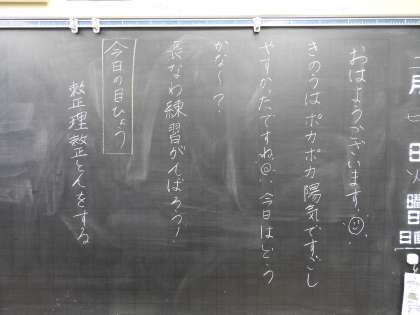 二月七日火曜日
日直
おはようございます☺
きのうはポカポカ陽気ですごし
やすかったですね☺ 今日はどう
かな～？
長なわ練習がんばろう！
今日の目ひょう
整理整とんをする